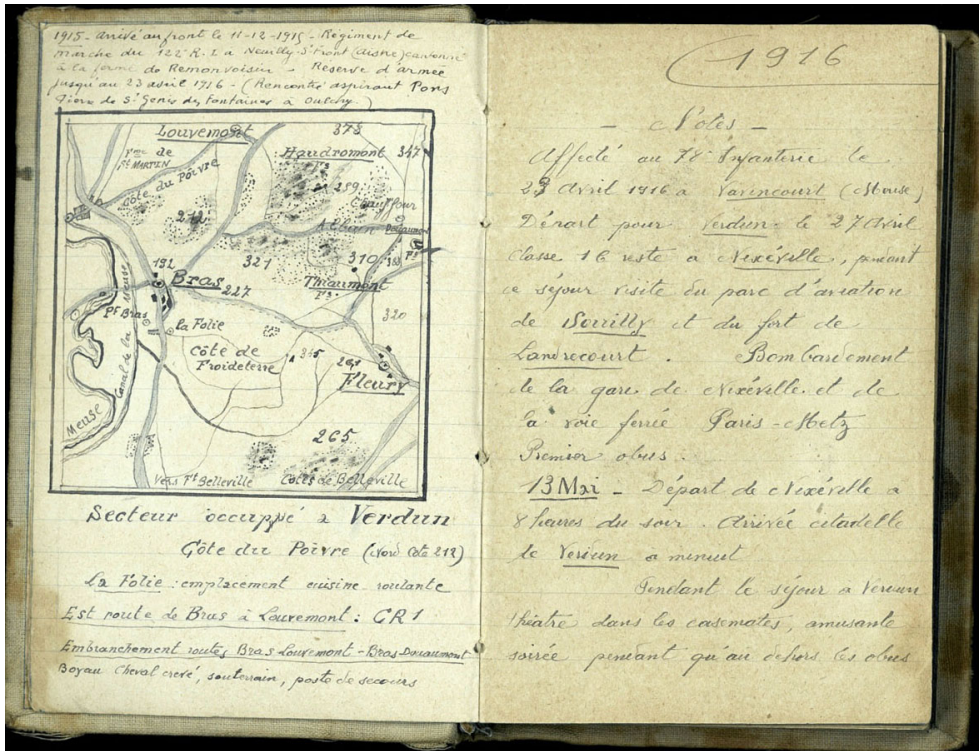 1915 - Arrivé au front le 11-12-1915 - Régiment de
marche du 122e R.I. à Neuilly-St Front (Aisne) cantonné
à la ferme de Remonvoisin - Réserve d'armée
jusqu'au 23 avril 1916 - (Rencontré aspirant Pons
Pierre de St Genis des Fontaines à Oulchy)
Louvemont
378
347
Haudromont
fme de
St MARTIN
Côte du Poivre
289
Chauffour
212
Albain
Douaumont
321
310
192
Bras
227
Thiaumont
320
Pt Bras
la Folie
Côte de
Froideterre
345
Fleury
Canal de la Meuse
Meuse
265
Vers Ft Belleville
Côtes de Belleville
Secteur occuppé à Verdun
Côte du Poivre (Nord Cote 212)
La Folie : emplacement cuisine roulante
Est route de Bras à Louvemont : CR1
Embranchement routes Bras Louvemont - Bras Douaumont
Boyau Cheval crevé, souterrain, poste de secours
1916
- Notes -
Affecté au 78e Infanterie le
23 Avril 1916 à Varincourt (Meuse)
Départ pour Verdun le 27 Avril
Classe 16 reste à Nixéville, pendant
ce séjour visite du parc d'aviation
de Souilly et du fort de
Landrecourt. Bombardement
de la gare de Nixéville et de
la voie ferrée Paris-Metz
Premier obus.
13 Mai - Départ de Nixéville à
8 heures du soir. Arrivée citadelle
de Verdun à minuit
Pendant le séjour à Verdun
théâtre dans les casemates, amusante
soirée pendant qu'au dehors les obus